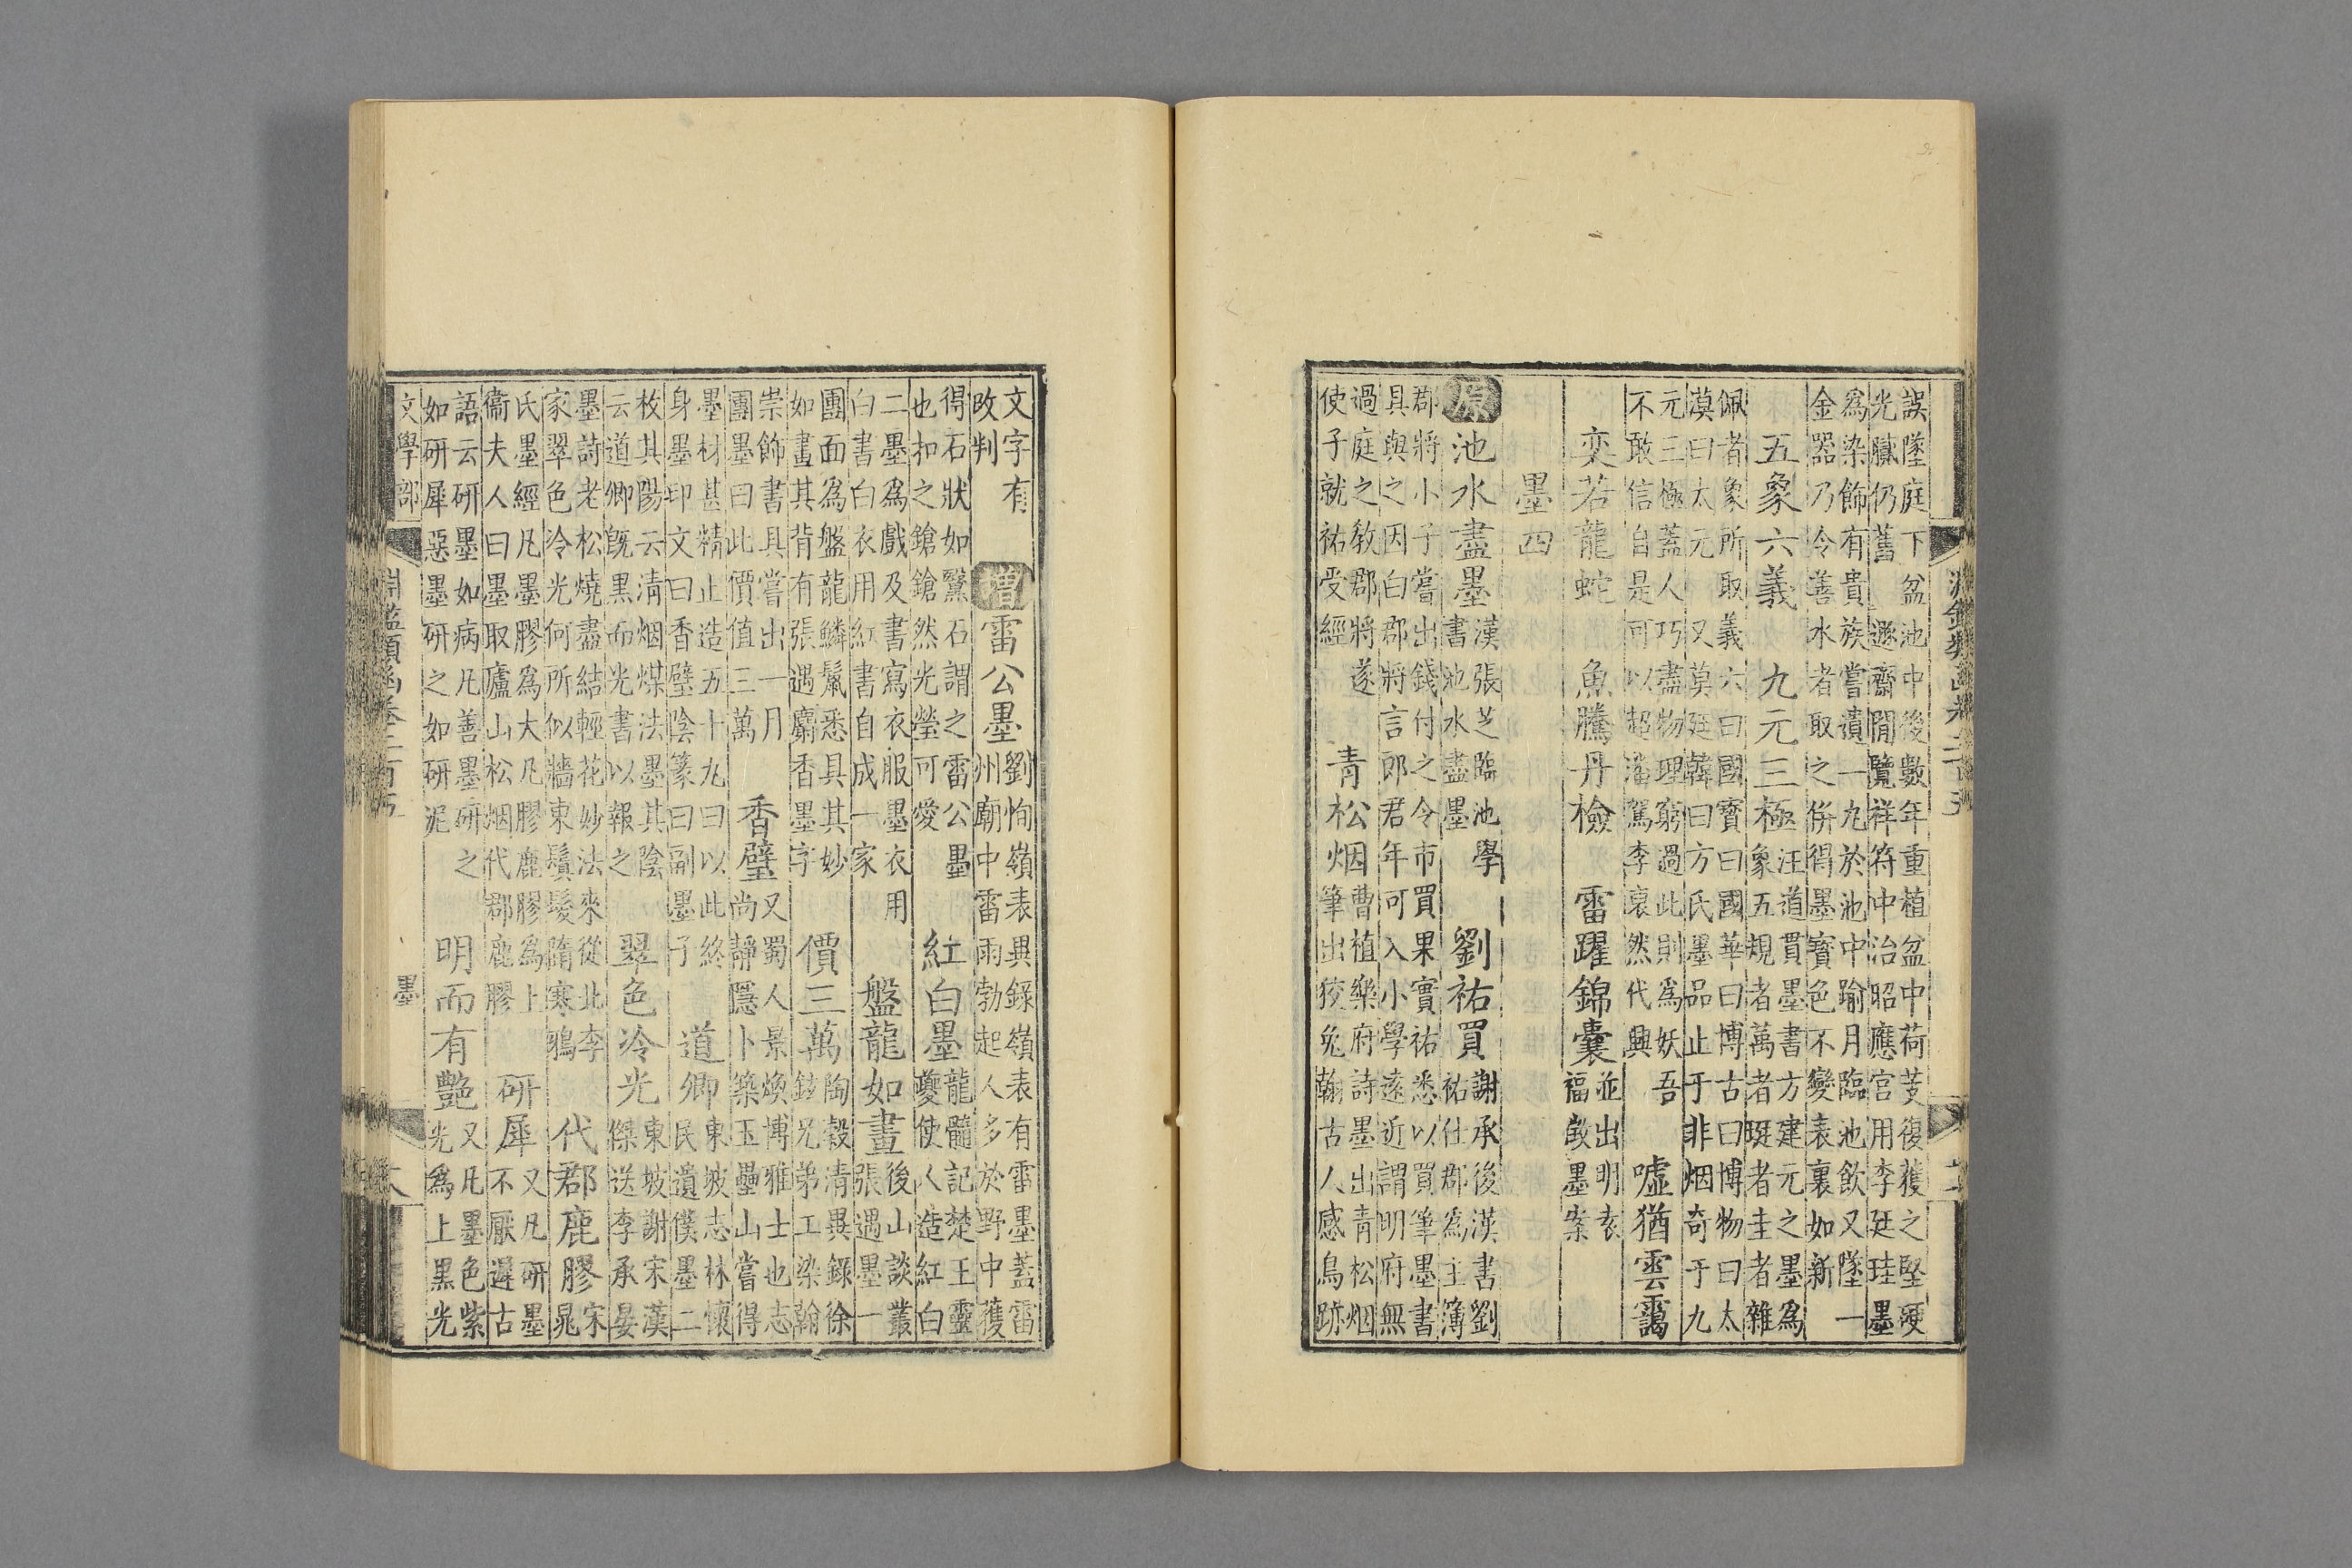 誤墜庭下盆池中後數年重植盆中荷芰復獲之堅硬
光膩仍舊 遯齋閒覽祥符中治昭應宮用李廷珪墨
爲染飾有貴族嘗遺一丸於池中踰月臨池飲又墜一
金器乃令善水者取之併得墨寶色不變表裏如新
五象六義 九元三極
汪道貫墨書方建元之墨爲
象五規者萬者珽者圭者雜
佩者象所取義六曰國寶曰國華曰博古曰博物曰太
漠曰太元又莫廷韓曰方氏墨品止于非烟奇于九
元三極蓋人巧盡物理窮過此則爲妖吾
不敢信自是可以超潘駕李裒然代興
噓猶雲靄
奕若龍蛇 魚騰丹檢 雷躍錦囊
並出明袁
福徵墨案
墨四
原池水盡墨
漢張芝臨池學
書池水盡墨
劉祐買
謝承後漢書劉
祐仕郡爲主簿
郡將小子嘗出錢付之令市買果實祐悉以買筆墨書
具與之因白郡將言郎君年可入小學遠近謂明府無
過庭之教郡將遂
使子就祐受經
青松烟
曹植樂府詩墨出青松烟
筆出狡兔翰古人感鳥跡
文字有
改判
增雷公墨
劉恂嶺表異錄嶺表有雷墨蓋雷
州廟中雷雨勃起人多於野中獲
得石狀如黳石謂之雷公墨
也扣之鎗鎗然光瑩可愛
紅白墨
龍髓記楚王靈
夔使人造紅白
二墨爲戲及書寫衣服墨衣用
白書白衣用紅書自成一家
盤龍如畫
後山談叢
張遇墨一
團面爲盤龍鱗鬣悉具其妙
如畫其背有張遇麝香墨字
價三萬
陶穀清異錄徐
鉉兄弟工染翰
崇飾書具嘗出一月
團墨曰此價值三萬
香璧
又蜀人景煥博雅士也志
尚靜隱卜築玉壘山嘗得
墨材甚精止造五十九曰以此終
身墨印文曰香璧陰篆曰副墨子
道卿
東坡志林懷
民遺僕墨二
枚其陽云淸烟煤法墨其陰
云道卿旣黑而光書以報之
翠色冷光
東坡謝宋漢
傑送李承晏
墨詩老松燒盡結輕花妙法來從北李
家翠色冷光何所似牆東鬒髮隋寒鴉
代郡鹿膠
宋
晁
氏墨經凡墨膠爲大凡膠鹿膠爲上
衞夫人曰墨取廬山松烟代郡鹿膠
研犀
又凡研墨
不厭遲古
語云研墨如病凡善墨研之
如研犀惡墨研之如研泥
明而有艷
又凡墨色紫
光爲上黑光
文學部 淵鑑類函卷二百五 墨 六